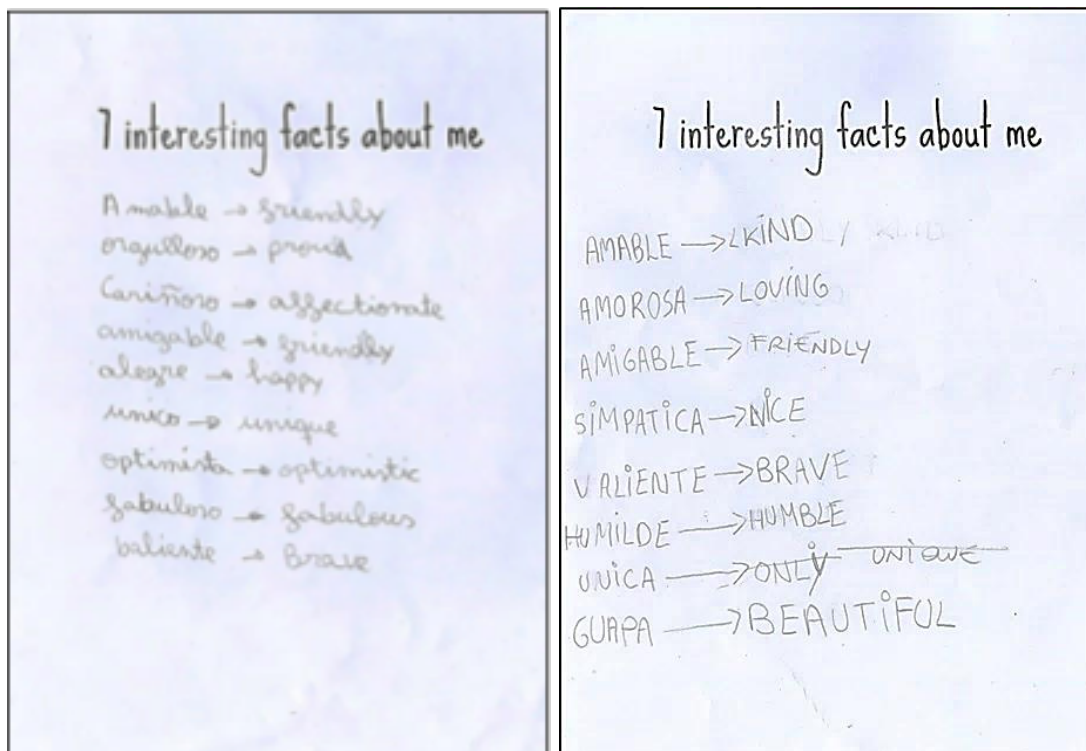 7 interesting facts about me
Amable → friendly
orgulloso → proud
Cariñoso → affectionate
amigable → friendly
alegre → happy
unico → unique
optimista → optimistic
fabuloso → fabulous
baliente → Brave
7 interesting facts about me
AMABLE → KIND
AMOROSA → LOVING
AMIGABLE → FRIENDLY
SIMPATICA → NICE
VALIENTE → BRAVE
HUMILDE → HUMBLE
UNICA → ONLY UNIQUE
GUAPA → BEAUTIFUL